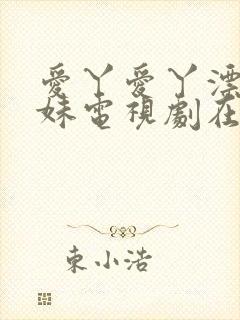 愛丫愛丫漂
妹電視劇在
東小浩